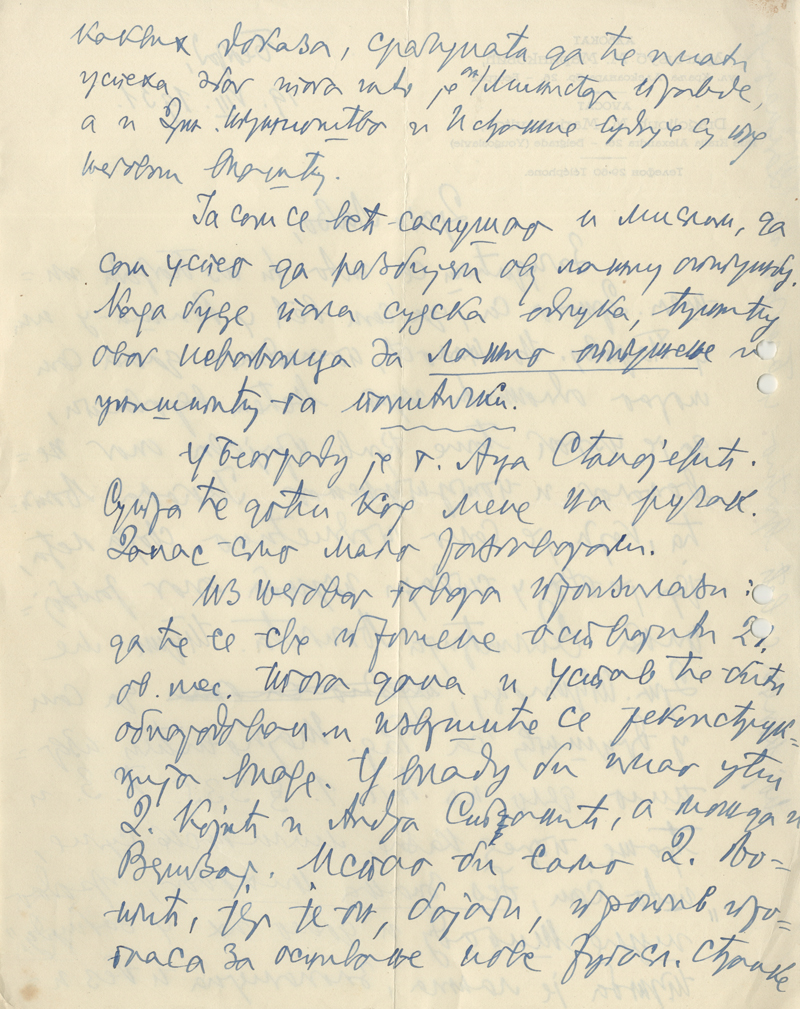 каквих доказа, срачуната да ће имати
успеха због тога што је он/Министар правде,
а и Држ. тужиоштво и Истражне судије су под
његовом влашћу.
Ја сам се већ саслушао и мислим, да
сам успео да разбијем ову лажну оптужбу.
Када буде пала судска одлука, тужићу
овог неваљалца за лажно оптужење и
уништићу га политички.
У Београду је г. Аца Станојевић.
Сутра ће доћи код мене на ручак.
Данас смо мало разговарали.
Из његовог говора произилази:
да ће се све промене остварити 2.
ов. мес. Тога дана и Устав ће бити
обнародован и извршиће се реконструк-
ција владе. У владу би имао ући
Д. Којић и Андра Станић, а можда и
Велизар. Испао би само Д.
јер је он, бајаги, против про-
гласа за оснивање нове југосл. странке